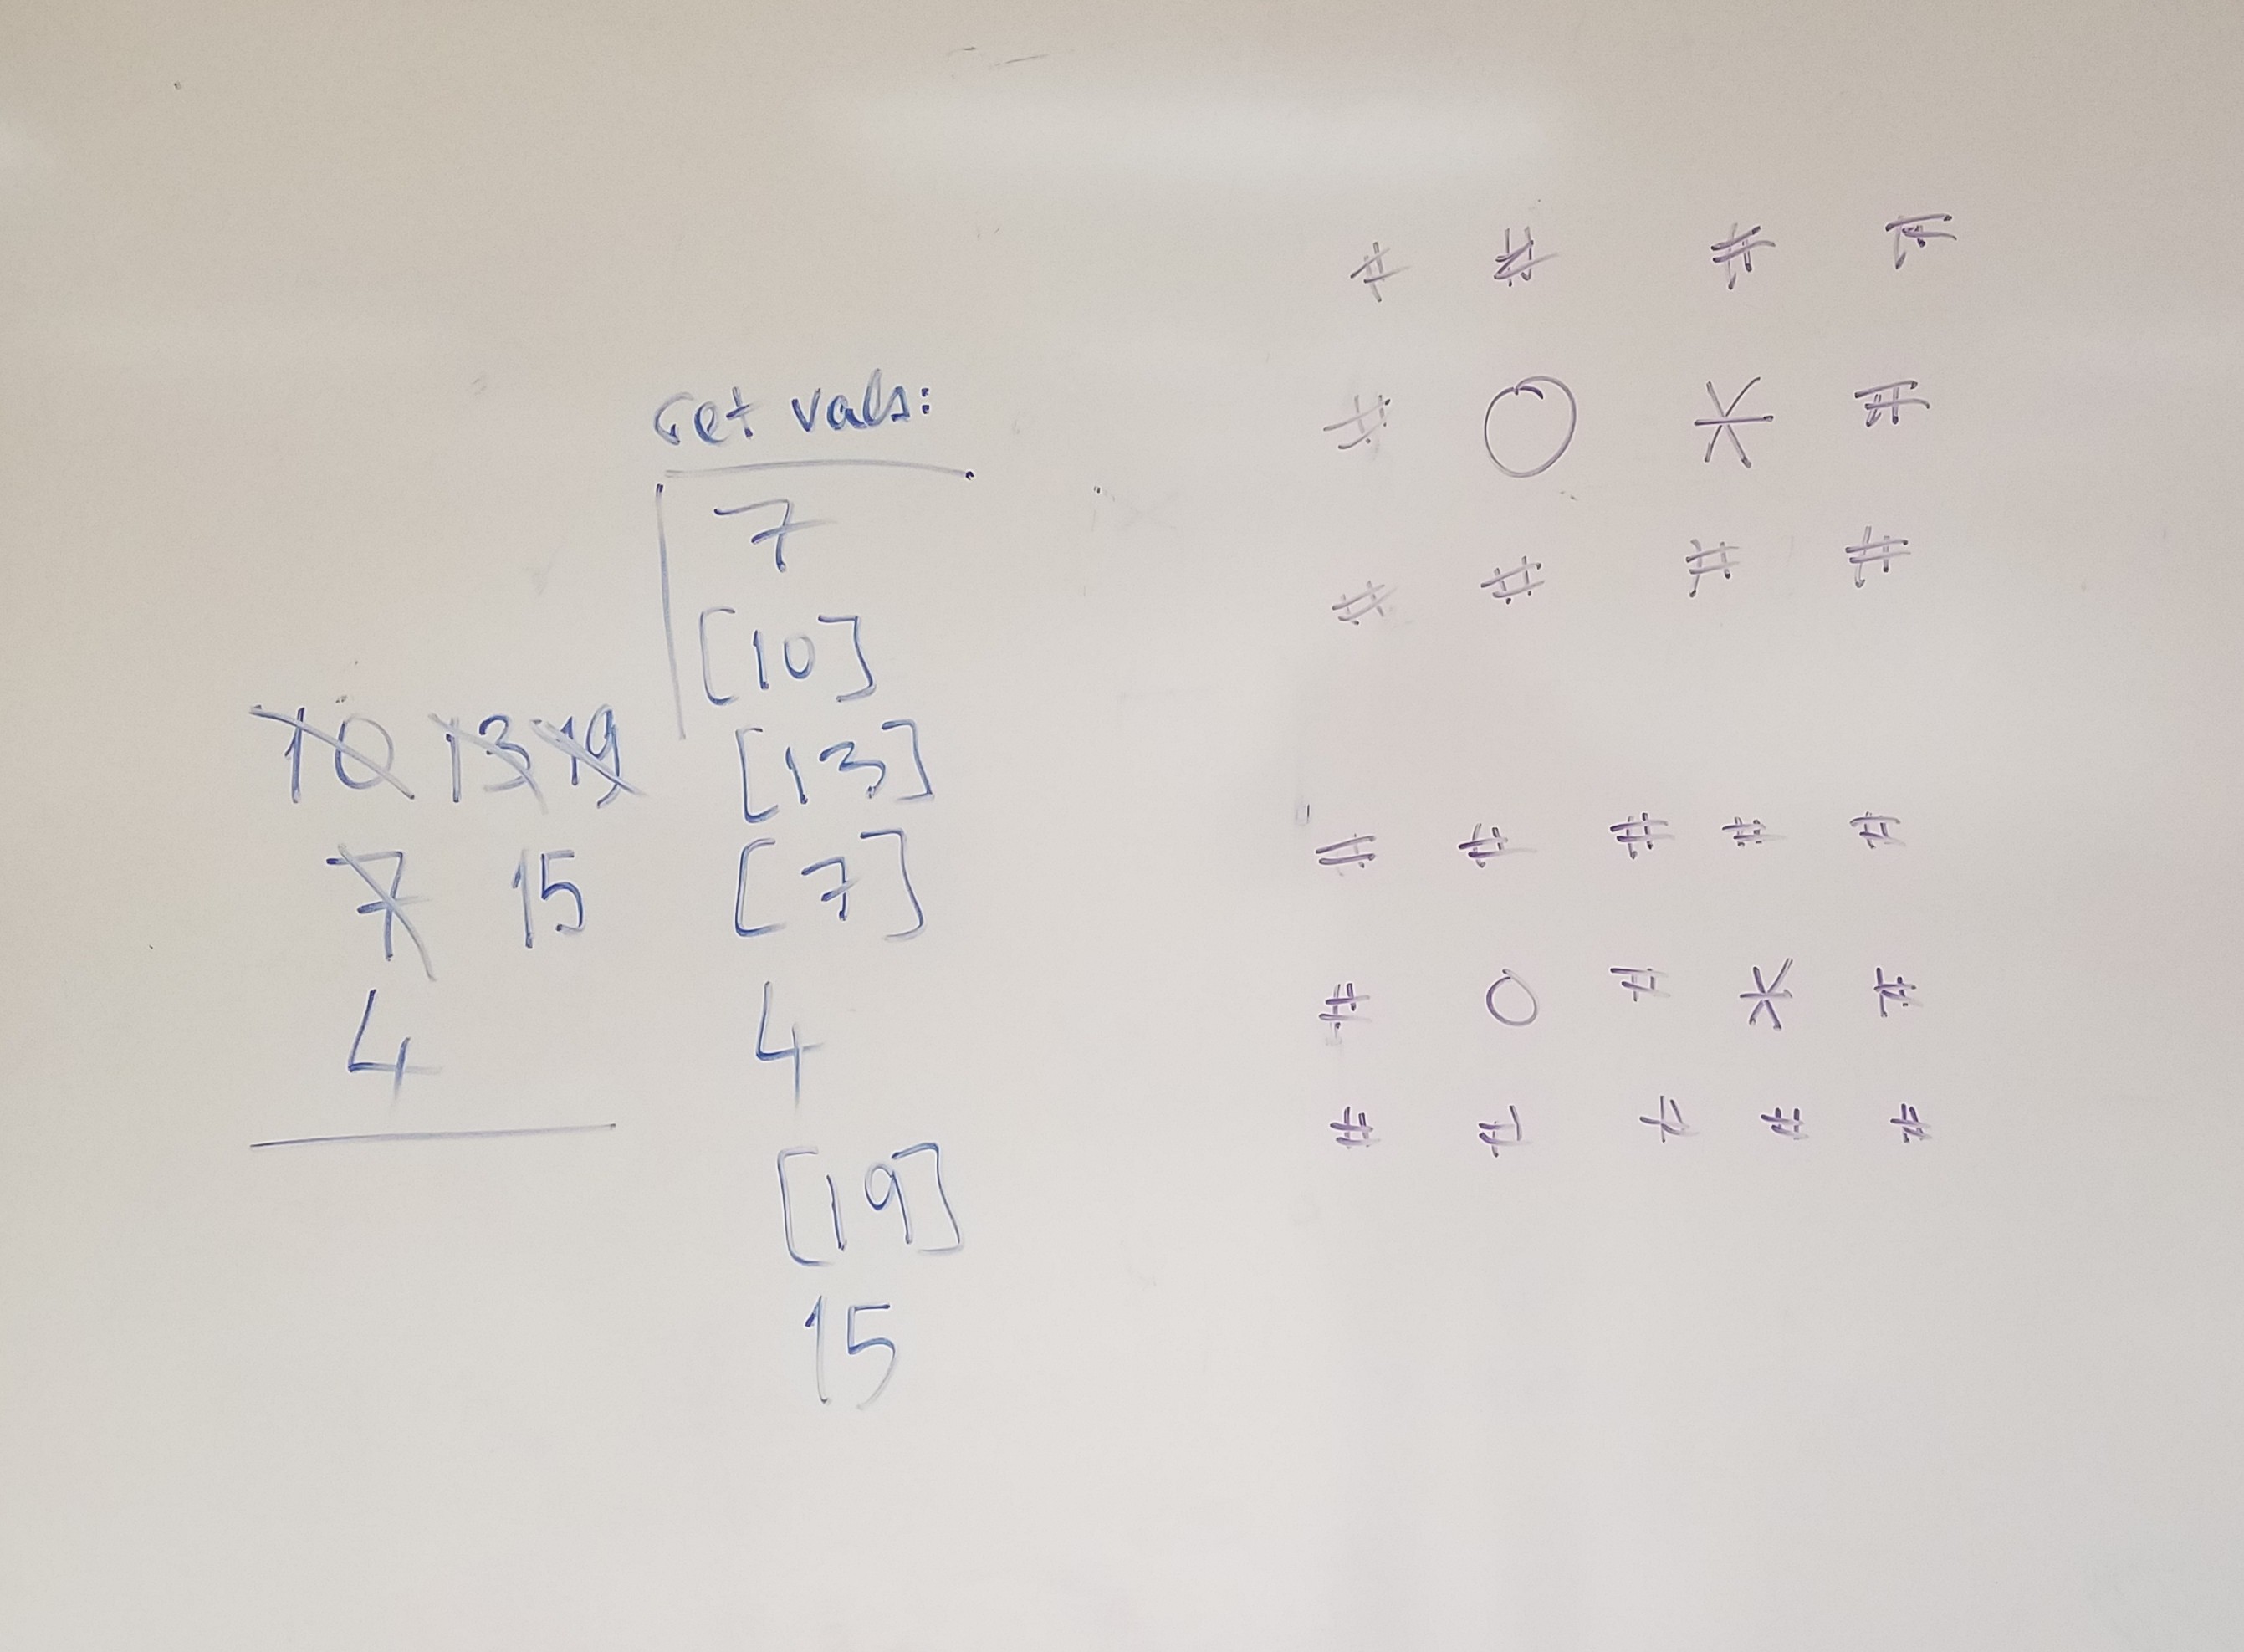 ret vals:
7
[10]
[13]
[7]
4
[19]
15
10 13 19
7 15
4
# # # #
# O * #
# # # #
# # # # #
# O # * #
# # # # #